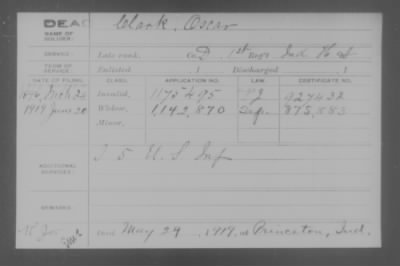 DEAD
NAME OF SOLDIER: Clark, Oscar
SERVICE: Late rank, Co. D, 1st Reg't Ind H A
TERM OF SERVICE: Enlisted , 1 Discharged , 1
DATE OF FILING. CLASS. APPLICATION NO. LAW. CERTIFICATE NO.
Mch 24 Invalid, 1175495 927432
1919 June 20 Widow, 1,142,870 875,883
Minor,
ADDITIONAL SERVICES: I 5 U. S Inf
REMARKS:
Died May 24, 1919, at Princeton, Ind.